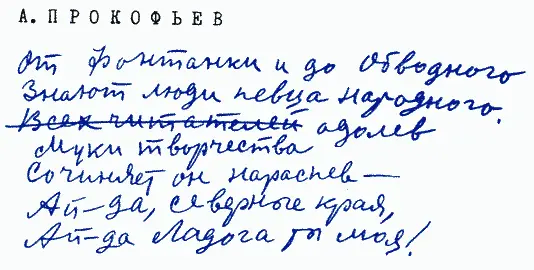 А. ПРОКОФЬЕВ
От Фонтанки и до Обводного
Знают люди певца народного.
Всех читателей одолев
Муки творчества
Сочиняет он нараспев —
Ай-да, северные края,
Ай-да Ладога ты моя!